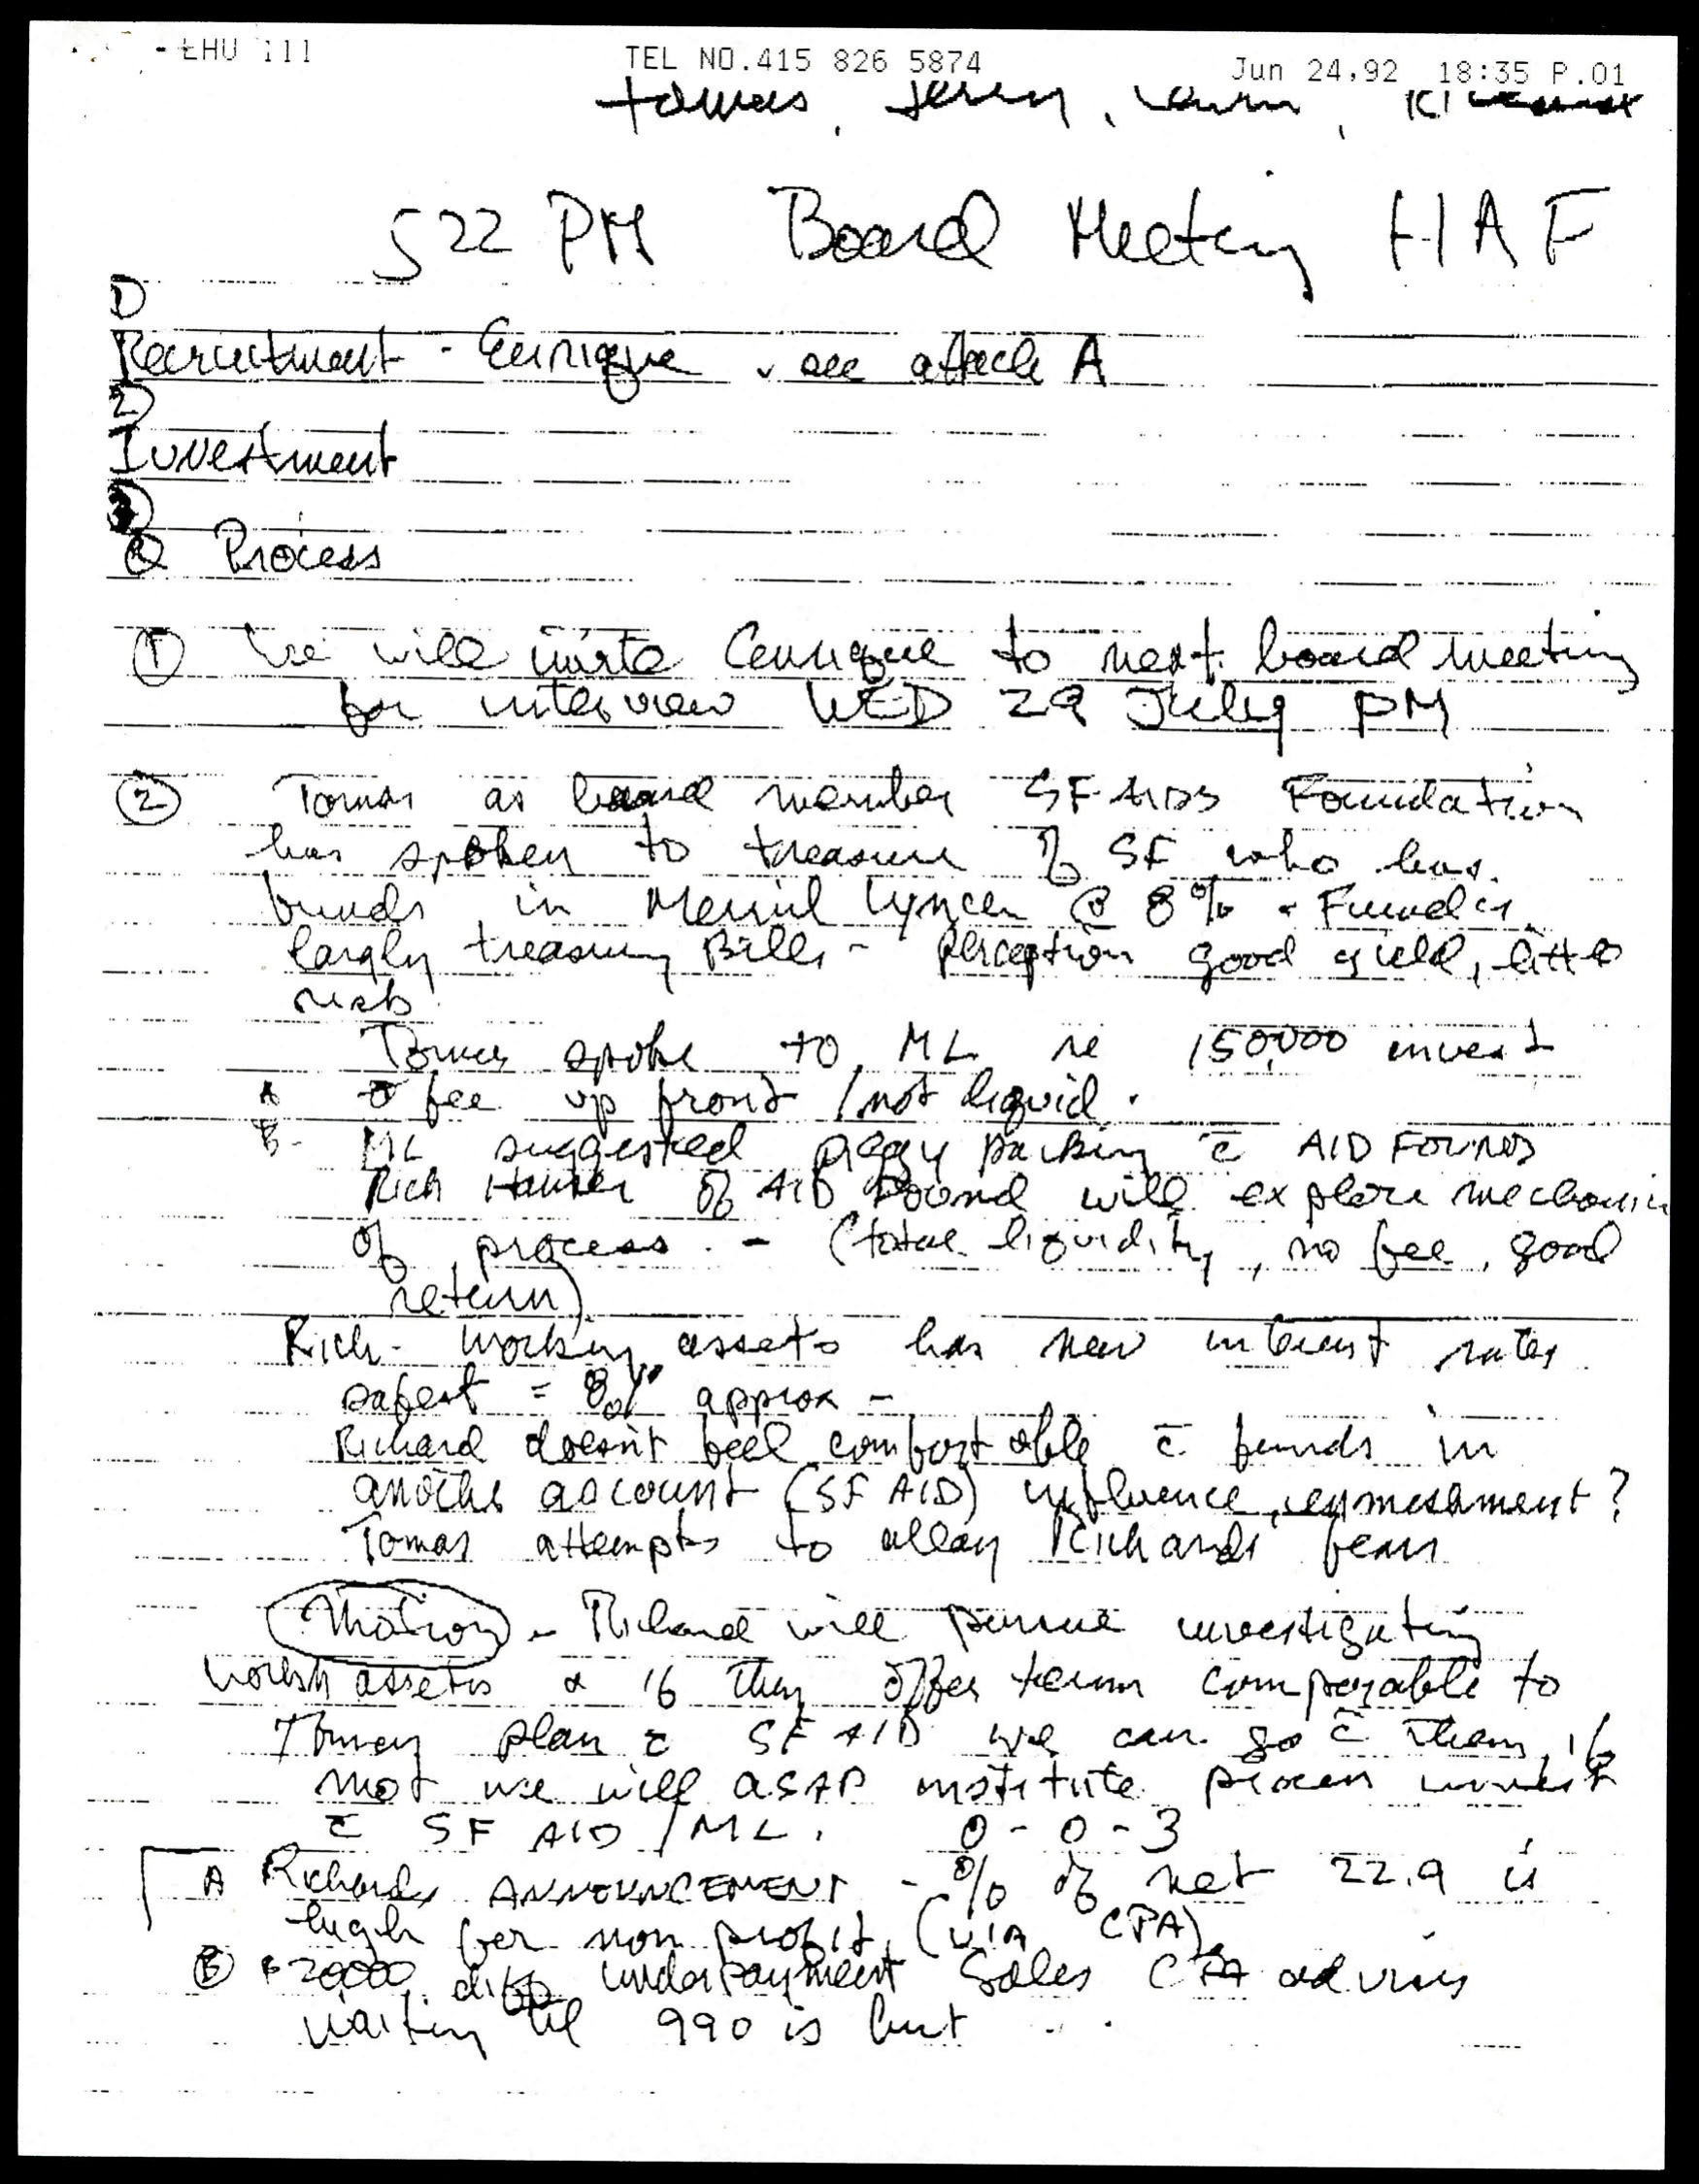 - EHU 111 TEL NO.415 826 5874 Jun 24,92 18:35 P.01
Tomas, Jerry,
522 PM Board Meeting HAF
1)
Recruitment - Enrique - see attach A
2)
Investment
3)
Process
① We will invite Enrique to next board meeting
for interview WED 29 July PM
② Tomas as board member SF AIDS Foundation
has spoken to treasure of SF who has
funds in Merril Lynch @ 8% - Funds
largly treasury Bills - Perception good yield, little
risk
Tomas spoke to ML re 150,000 invest
A fee up front / not liquid.
B- ML suggested piggy backing c̄ AID FOUND
Rich of AID Found will explore mechanic
of process. - (total liquidity, no fee, good
return)
Rich - working assets has new interest rates
safest = 8% approx -
Richard doesn't feel comfortable c̄ funds in
another account (SF AID) influence, enmeshment?
Tomas attempts to allay Richards fears
Motion - Richard will pursue investigating
workn assets & if they offer terms comparable to
Tomas plan c̄ SF AID we can go c̄ them, if
not we will ASAP institute process invest
c̄ SF AID / ML. 0-0-3
A Richards ANNOUNCEMENT - % of net 22.9 is
high for non profit (VIA CPA)
Ⓑ $20,000 diff underpayment Sales CPA advises
waiting til 990 is